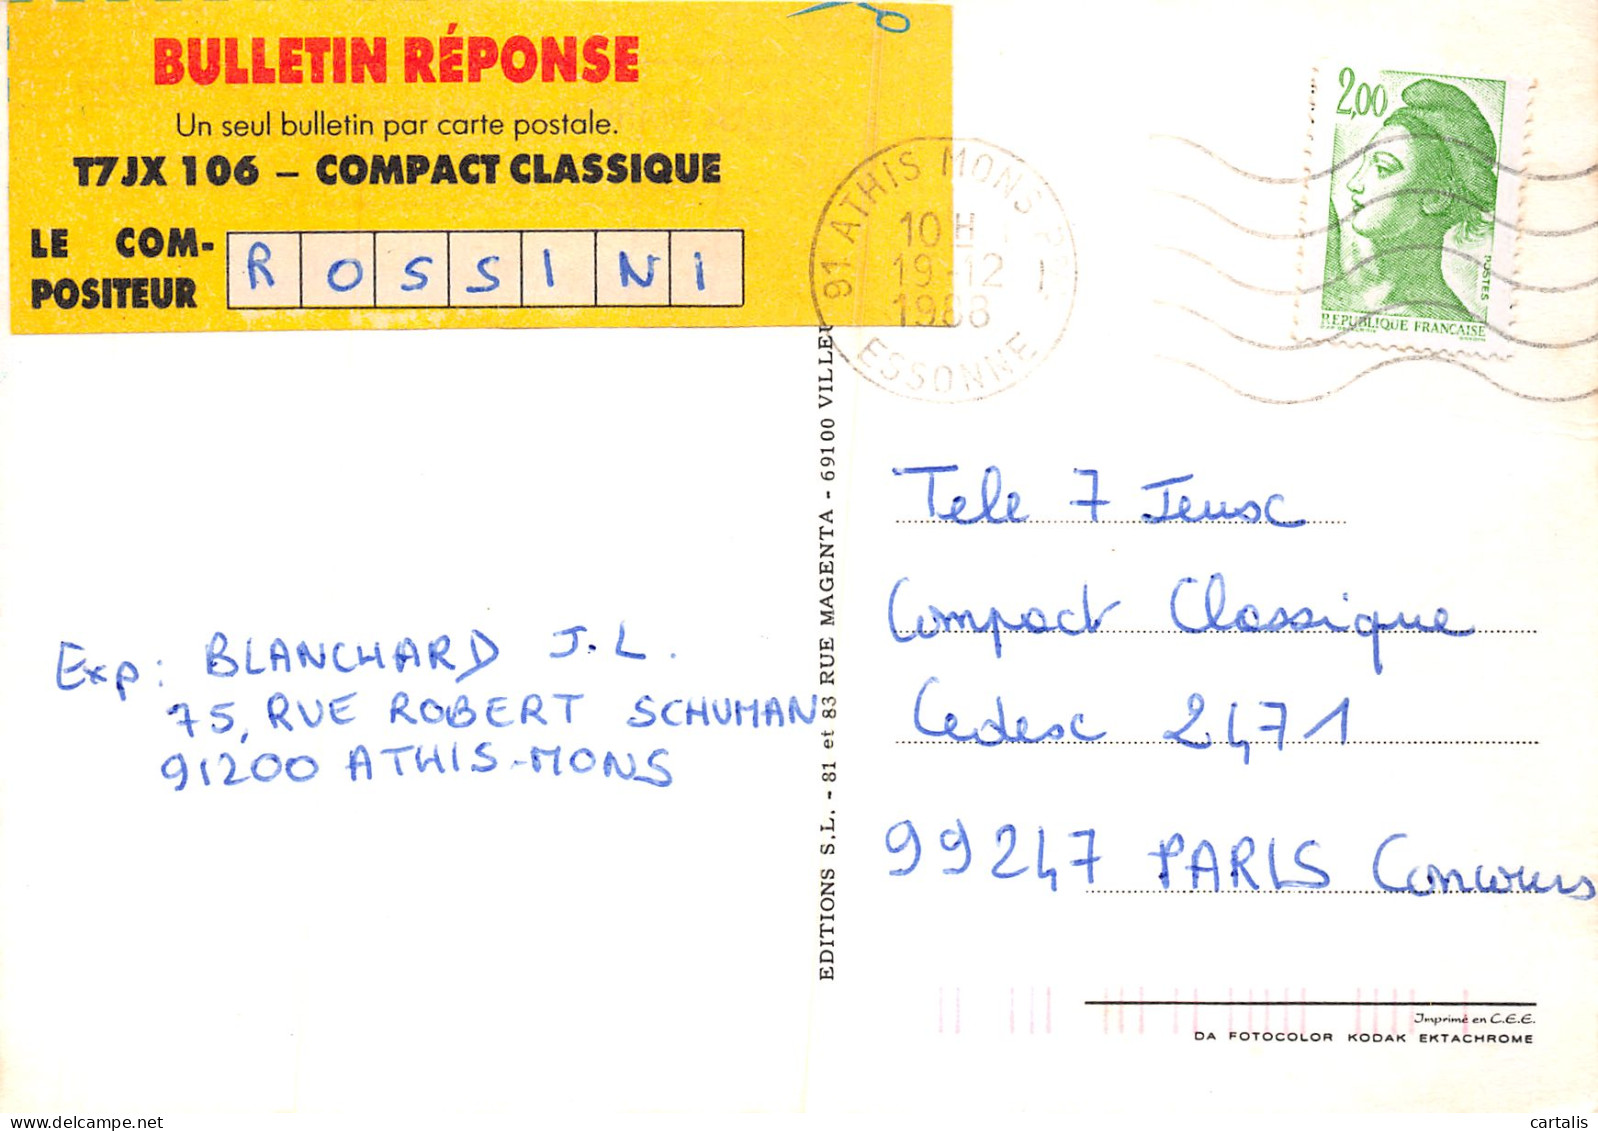 BULLETIN RÉPONSE
Un seul bulletin par carte postale.
T7JX 106 – COMPACT CLASSIQUE
LE COM-
POSITEUR
R O S S I N I
91 ATHIS MONS
10 H
19-12
1988
ESSONNE
2,00
POSTES
REPUBLIQUE FRANCAISE
EDITIONS S.L. - 81 et 83 RUE MAGENTA - 69100 VILLEU
Exp: BLANCHARD J.L.
75, RUE ROBERT SCHUMAN
91200 ATHIS-MONS
Tele 7 Jeux
Compact Classique
Cedex 2471
99247 PARIS Concours
Imprimé en C.E.E.
DA FOTOCOLOR KODAK EKTACHROME
cartalis